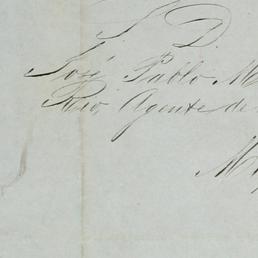 S D
José Pablo M
Rio, Agente de
M